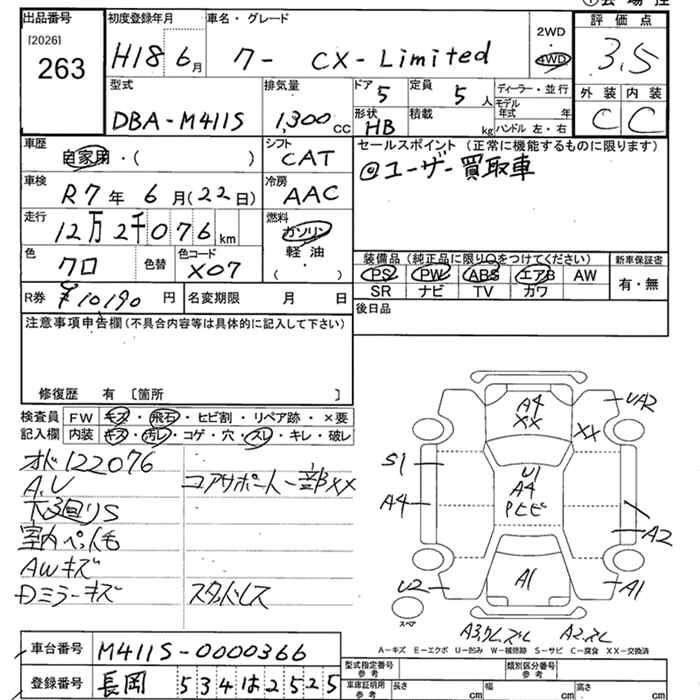 出品番号 初度登録年月 車名・グレード 2WD 評価点
[2026] 4WD
263 H18 6月 ワ- CX-Limited 3.5
型式 排気量 ドア 定員 ディーラー・並行 外装 内装
5 5人 モデル年式 年 C C
DBA-M411S 1,300cc 形状 積載 ハンドル 左・右
HB kg
車歴 自家用・( ) シフト CAT セールスポイント(正常に機能するものに限ります)
車検 R7年6月(22日) 冷房 AAC ◎ユーザー買取車
走行 12万2千076km 燃料 ガソリン
軽油
( )
色 クロ 色替 色コード X07 装備品(純正品に限り○をつけてください) 新車保証書
PS PW ABS エアB AW 有・無
R券 ¥10190円 名変期限 月 日 SR ナビ TV カワ
注意事項申告欄(不具合内容等は具体的に記入して下さい) 後日品
修復歴 有 〔箇所 〕
検査員 FW キズ・飛石・ヒビ割・リペア跡・×要
記入欄 内装 キズ・汚レ・コゲ・穴・スレ・キレ・破レ
オド122076
A.U コアサポート一部XX
下回りS
室内ペット毛
AWキズ
Dミラーキズ スタッドレス
A4
XX
UA2
XX
S1
U1
A4
A4
Pヒビ
A2
U2
A1
A1
スペア
A3,クレ,ズレ A2,ズレ
A-キズ E-エクボ U-凹み W-補修跡 S-サビ C-腐食 XX-交換済
車台番号 M411S-0000366
登録番号 長岡 534は2525
型式指定番号 参考 類別区分番号 参考
車庫証明用 参考 長さ cm 幅 cm 高さ cm